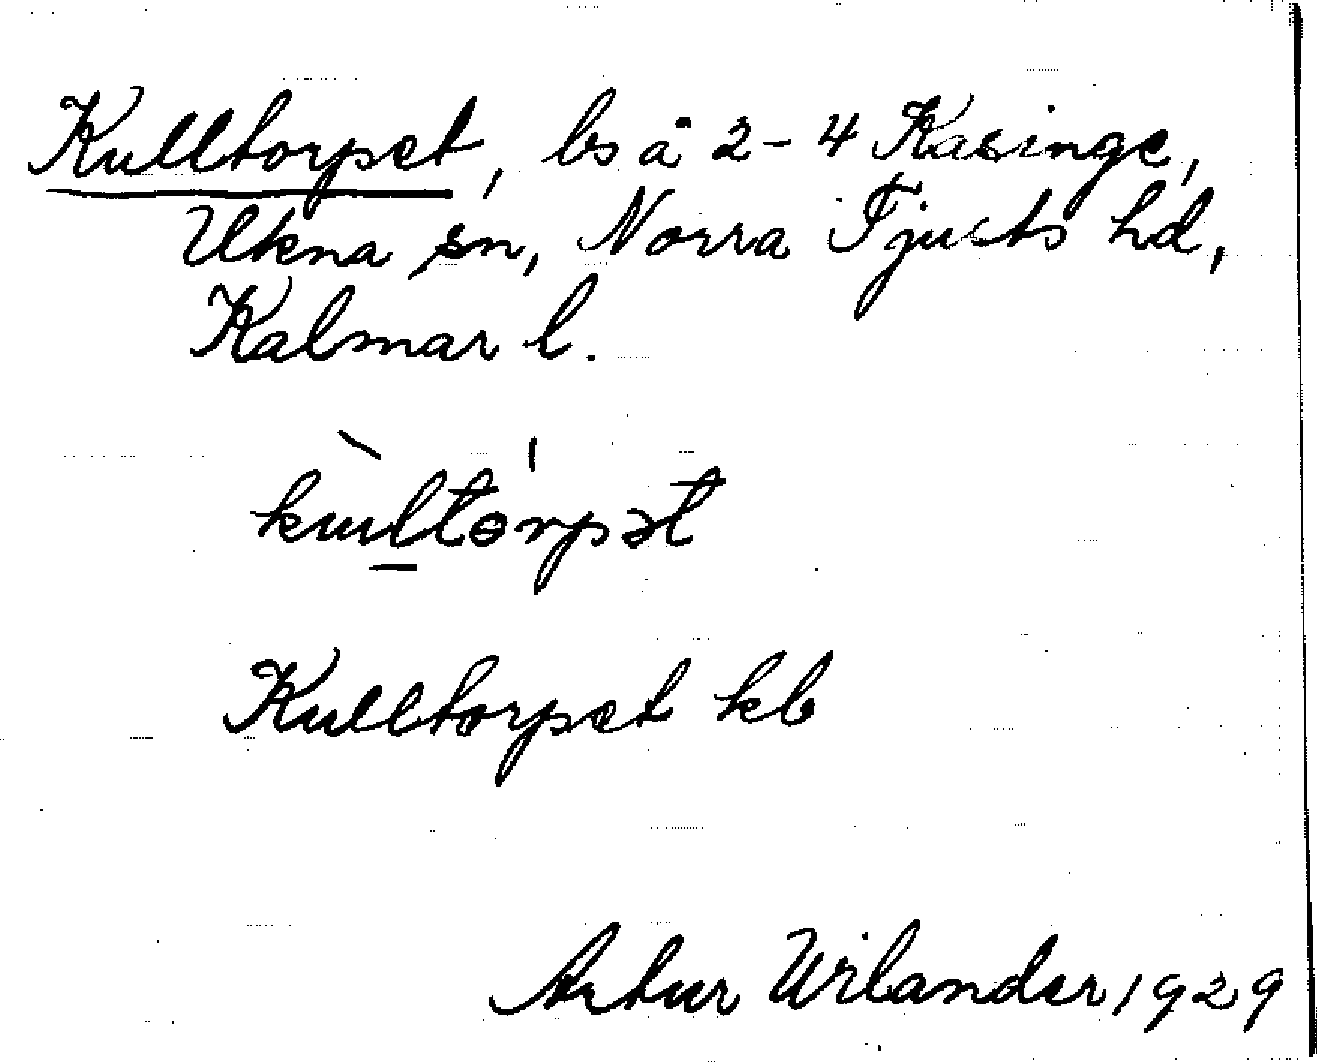 Kulltorpet, ls å 2-4 Kasinge,
Ukna sn, Norra Tjusts hd,
Kalmar l.
kùltɵ́rpət
Kulltorpet kb
Artur Wilander 1929